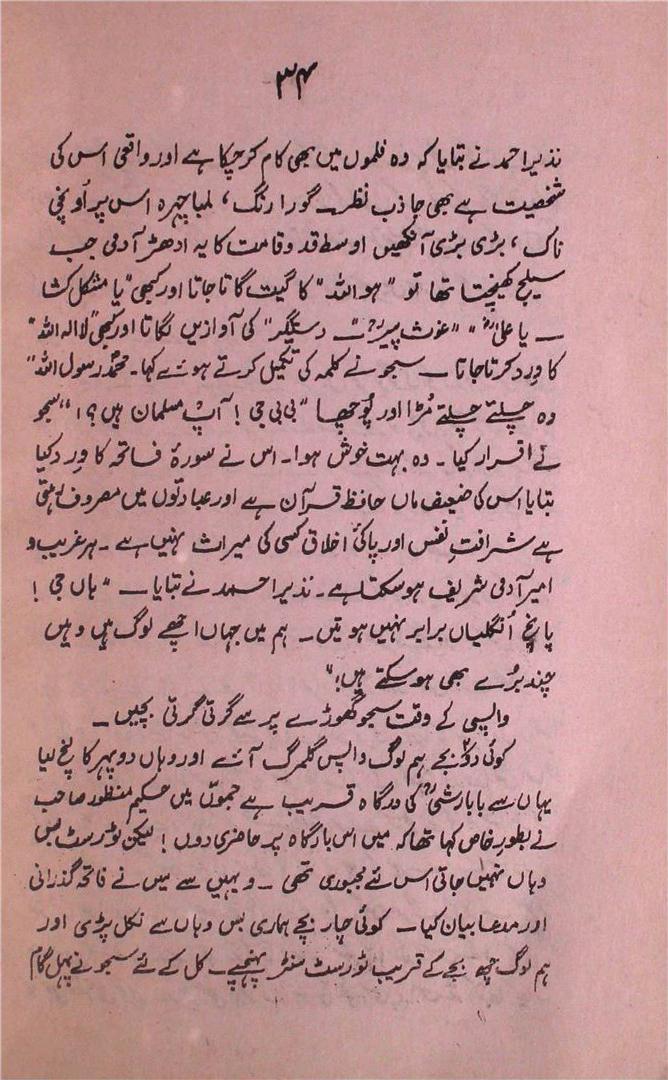 ۳۴
نذیر احمد نے بتایا کہ وہ فلموں میں بھی کام کرچکا ہے اور واقعی اس کی
شخصیت ہے بھی جاذب نظر۔ گورا رنگ، لمبا چہرہ اس پر اُونچی
ناک، بڑی بڑی آنکھیں اوسط قد وقامت کا یہ ادھڑ آدمی جب
سیلج کھینچتا تھا تو "ھو اللہ" کا گیت گاتا جاتا اور کبھی "یا مشکل کشا
— یا علیؓ" "غوث پیرؒ — دستگیر" کی آوازیں لگاتا اور کبھی "لا الہ اللہ"
کا وِرد کرتا جاتا — سجو نے کلمہ کی تکمیل کرتے ہوئے کہا۔ محمدؐ رسول اللہ"
وہ چلتے چلتے مُڑا اور پُوچھا "بی بی جی! آپ مسلمان ہیں؟!" سجو
نے اقرار کیا۔ وہ بہت خوش ہوا۔ اس نے سورۂ فاتحہ کا وِرد کیا
بتایا اس کی ضعیف ماں حافظ قرآن ہے اور عبادتوں میں مصروف رہتی
ہے شرافتِ نفس اور پاکیٔ اخلاق کسی کی میراث نہیں ہے۔ ہر غریب و
امیر آدمی شریف ہوسکتا ہے۔ نذیر احمد نے بتایا — "ہاں جی!
پانچ اُنگلیاں برابر نہیں ہوتیں۔ ہم میں جہاں اچھے لوگ ہیں وہیں
چند بُرے بھی ہوسکتے ہیں!"
واپسی کے وقت سجو گھوڑے پر سے گرتی گرتی بچیں۔
کوئی دوؔ بجے ہم لوگ واپس گلمرگ آئے اور وہاں دوپہر کا لنچ لیا
یہاں سے بابا رشیؒ کی درگاہ قریب ہے جموّں میں حکیم منظور صاحب
نے بطورِ خاص کہا تھا کہ میں اس بارگاہ پر حاضری دوں! لیکن ٹورسٹ بس
وہاں نہیں جاتی اس لئے مجبوری تھی — وہیں سے میں نے فاتحہ گذرانی
اور مدعا بیان کیا — کوئی چار بجے ہماری بس وہاں سے نکل پڑی اور
ہم لوگ چھ بجے کے قریب ٹورسٹ سنٹر پہنچے — کل کے لئے سجو نے پہل گام